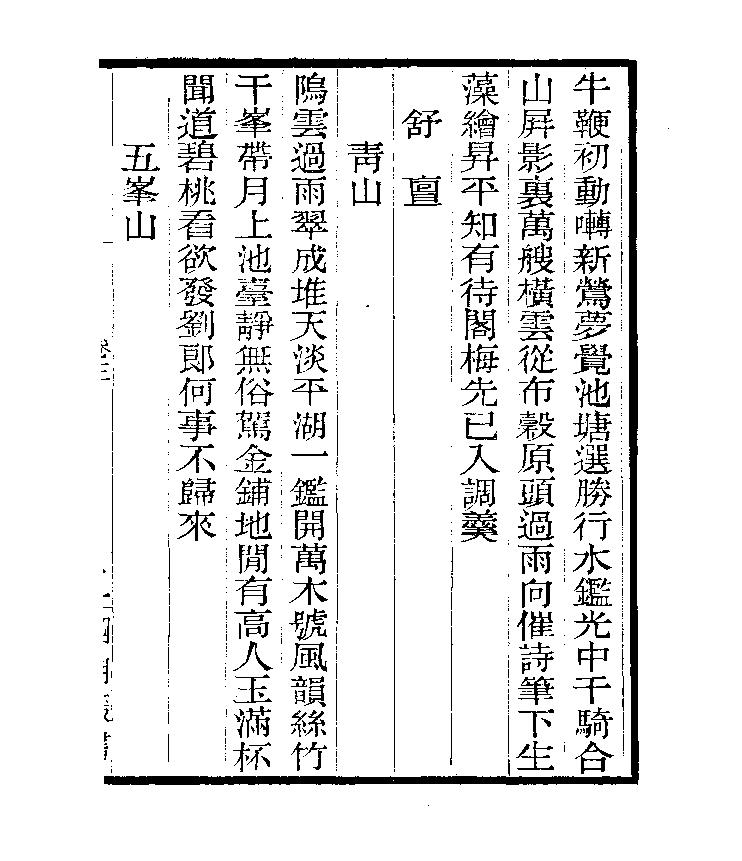 牛鞭初動囀新鶯夢覺池塘選勝行水鑑光中千騎合
山屏影裏萬艘橫雲從布穀原頭過雨向催詩筆下生
藻繪昇平知有待閣梅先已入調羹
舒亶
靑山
隝雲過雨翠成堆天淡平湖一鑑開萬木號風韻絲竹
千峯帶月上池臺靜無俗駕金鋪地閒有高人玉滿杯
聞道碧桃看欲發劉郎何事不歸來
五峯山
卷三
四明叢書